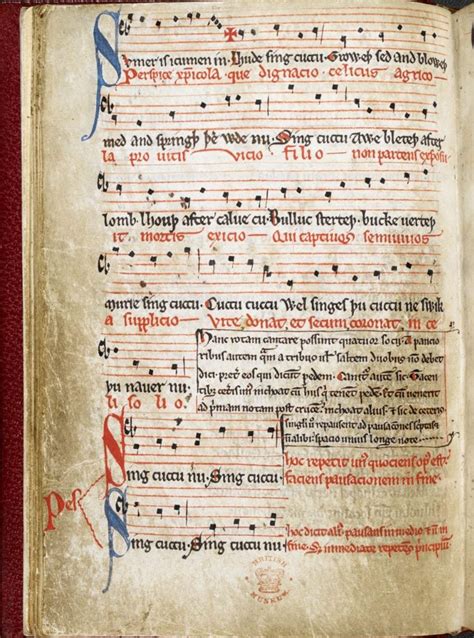 Sumer is icumen in. Lhude sing cuccu. Groweþ sed and bloweþ
Perspice xp̄icola. que dignacio. celicus agrico
med and springþ þe wde nu. Sing cuccu Awe bleteþ after
la pro uitis vicio filio non parcens exposu
lomb. lhouþ after calue cu. Bulluc sterteþ. bucke uerteþ
it mortis exicio Qui captiuos semiuiuos
murie sing cuccu. Cuccu cuccu Wel singes þu cuccu ne swik
a supplicio Vite donat et secum coronat in ce
Hanc rotam cantare possunt quatuor socij. A paucio
ribus autem quam a tribus uel saltem duobus non debet
dici preter eos qui dicunt pedem. Canitur autem sic. Tacen
þu nauer nu.
tibus ceteris unus inchoat cum hiis qui tenent pedem. et cum uenerit
li solio.
ad primam notam post crucem. inchoat alius. et sic de ceteris
singuli uero repausent ad pausaciones scriptas
non alibi. spacio unius longe note
Pes
Sing cuccu nu. Sing cuccu.
hoc repetit unus quociens opus est.
faciens pausacionem in fine.
Sing cuccu. Sing cuccu nu
hoc dicit alius. pausans in medio et non in
fine. Sed immediate repetens principium.
BRITISH
MUSEUM